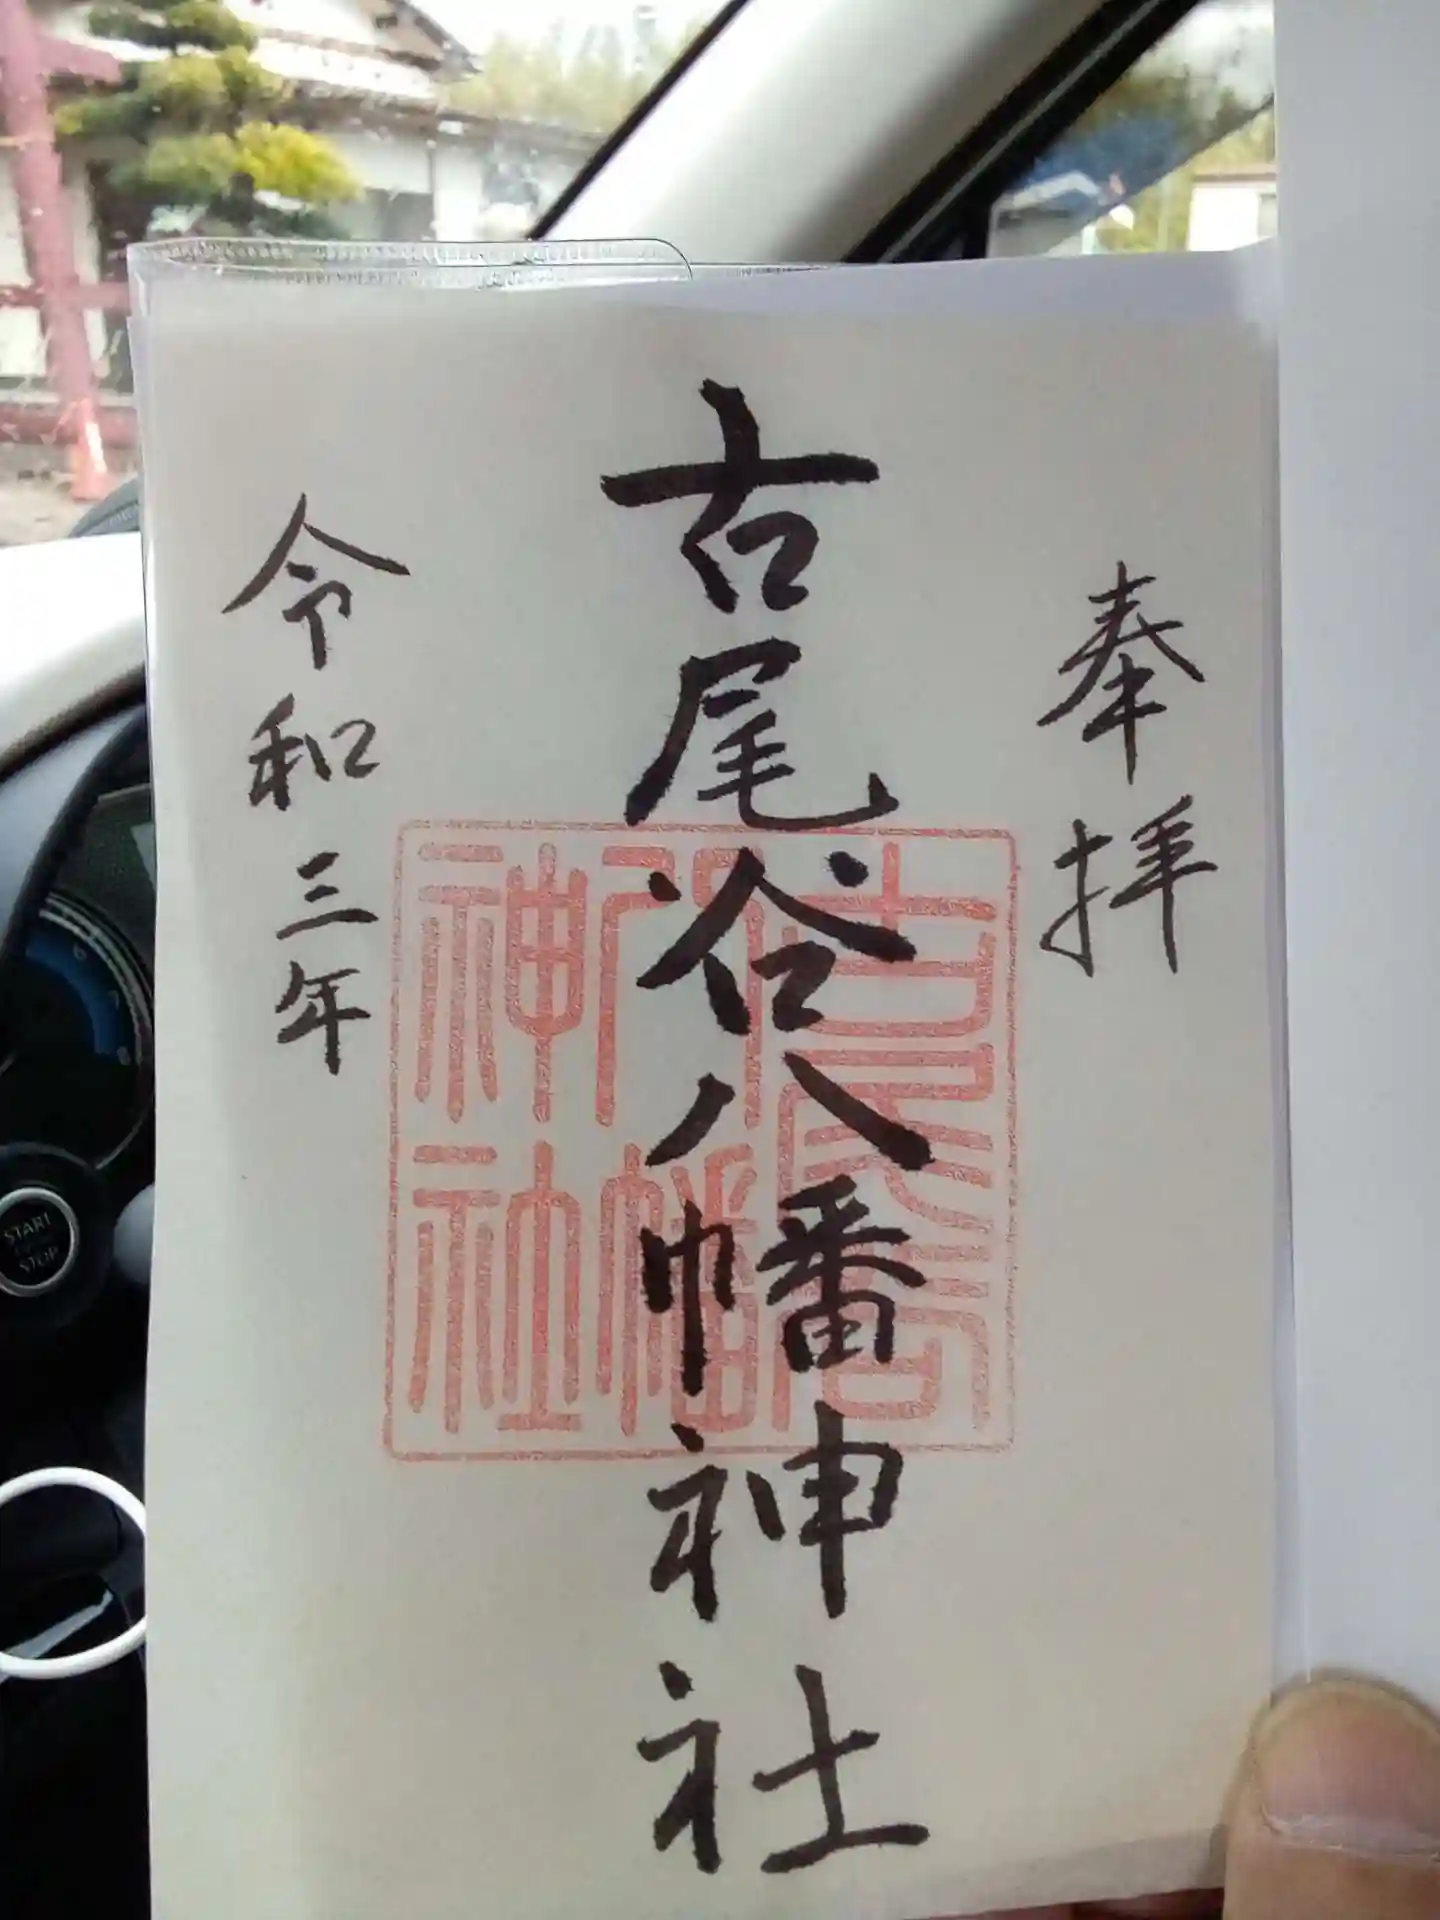 奉拝
古尾谷八幡神社
令和三年
古尾谷
八幡
神社
START
STOP